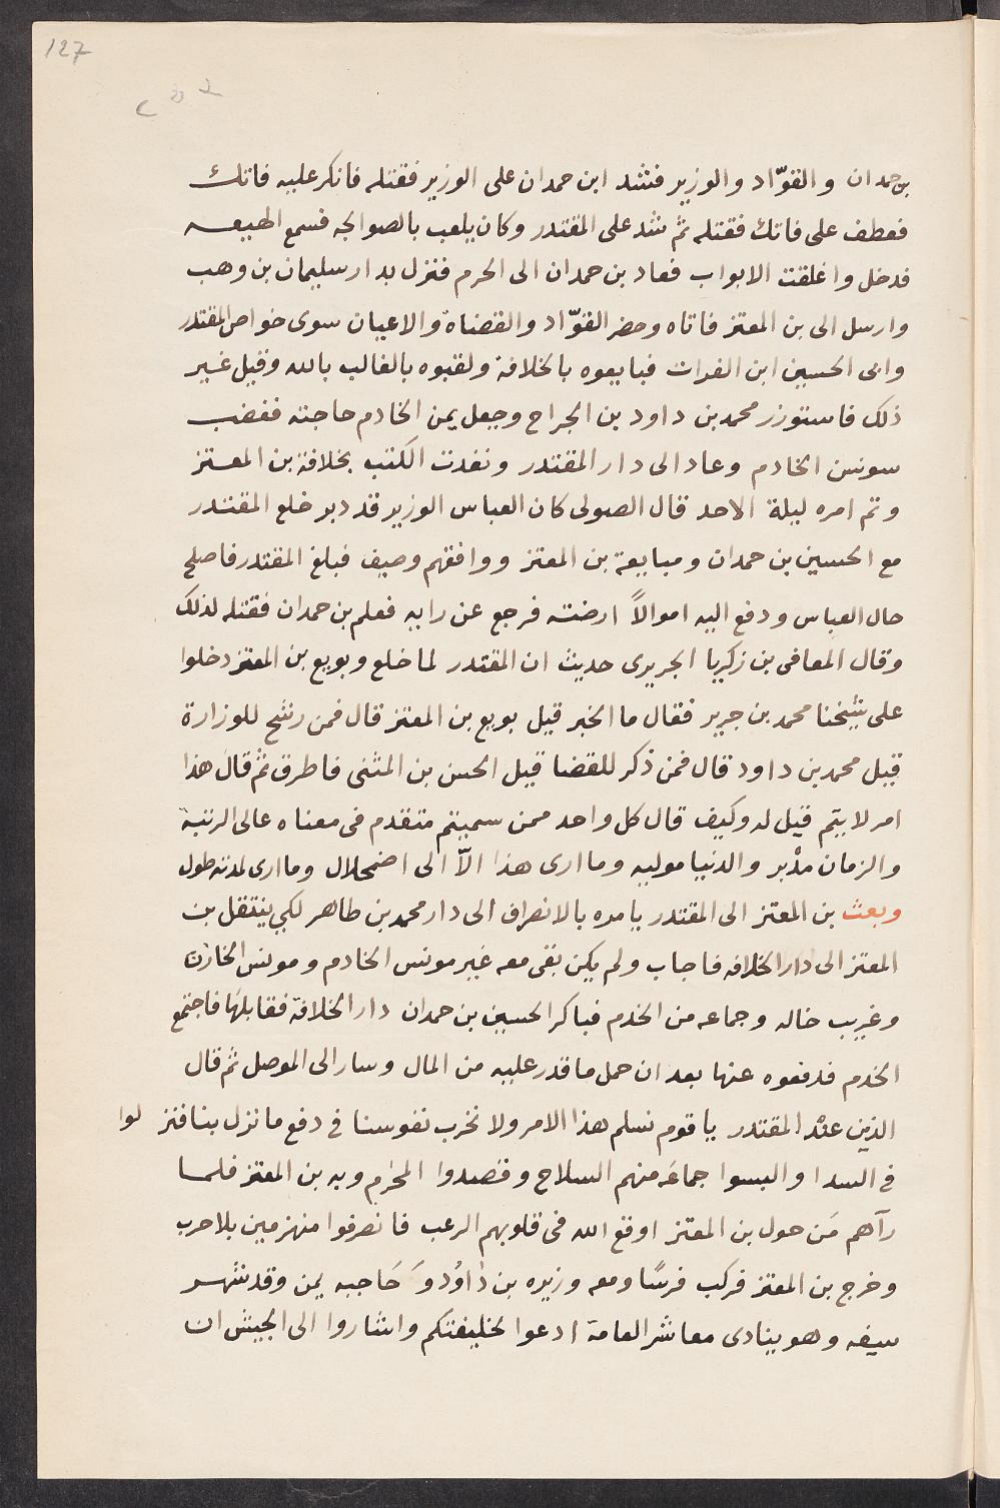 127
بن حمدان والقوّاد والوزير فشد ابن حمدان على الوزير فقتله فانكر عليه فاتك
فعطف على فاتك فقتله ثم شد على المقتدر وكان يلعب بالصوالجه فسمع الهيعه
فدخل واغلقت الابواب فعاد بن حمدان الى الحرم فنزل بدار سليمان بن وهب
وارسل الى بن المعتز فاتاه وحضر القوّاد والقضاة والاعيان سوى خواص المقتدر
وابى الحسين ابن الفرات فبايعوه بالخلافة ولقبوه بالغالب بالله وقيل غير
ذلك فاستوزر محمد بن داود بن الجراح وجعل يمن الخادم حاجته فغضب
سونسن الخادم وعاد الى دار المقتدر ونفدت الكتب بخلافة بن المعتز
وتم امره ليلة الاحد قال الصولى كان العباس الوزير قد دبر خلع المقتدر
مع الحسين بن حمدان ومبايعة بن المعتز ووافقهم وصيف فبلغ المقتدر فاصلح
حال العباس ودفع اليه اموالاً ارضته فرجع عن رايه فعلم بن حمدان فقتله لذلك
وقال المعافى بن زكريا الجريرى حديث ان المقتدر لما خلع وبويع بن المعتز دخلوا
على شيخنا محمد بن جرير فقال ما الخبر قيل بويع بن المعتز قال فمن رشح للوزارة
قيل محمد بن داود قال فمن ذكر للقضا قيل الحسن بن المثنى فاطرق ثم قال هذا
امر لا يتم قيل له وكيف قال كل واحد ممن سميتم متقدم فى معناه عالى الرتبة
والزمان مدْبر والدنيا موليه وما ارى هذا الاّ الى اضمحلال وما ارى لمدته طول
وبعث بن المعتز الى المقتدر يامره بالانصراف الى دار محمد بن طاهر لكي ينتقل بن
المعتز الى دار الخلافه فاجاب ولم يكن بقى معه غير مونس الخادم ومونس الخازن
وغريب خاله وجماعه من الخدم فباكر الحسين بن حمدان دار الخلافة فقابلها فاجتمع
الخدم فدفعوه عنها بعد ان حمل ما قدر عليه من المال وسار الى الموصل ثم قال
الذين عند المقتدر يا قوم نسلم هذا الامر ولا نخرب نفوسنا في دفع ما نزل بنا فنز لوا
في السدا والبسوا جماعَه منهم السلاح وقصدوا المخرم وبه بن المعتز فلما
رآهم مَن حول بن المعتز اوقع الله فى قلوبهم الرعب فانصرفوا منهزمين بلا حرب
وخرج بن المعتز فركب فرسًا ومعه وزيره بن داوُد وَحَاجبه يمن وقد شهر
سيفه وهو ينادى معاشر العامة ادعوا لخليفتكم واشاروا الى الجيش ان